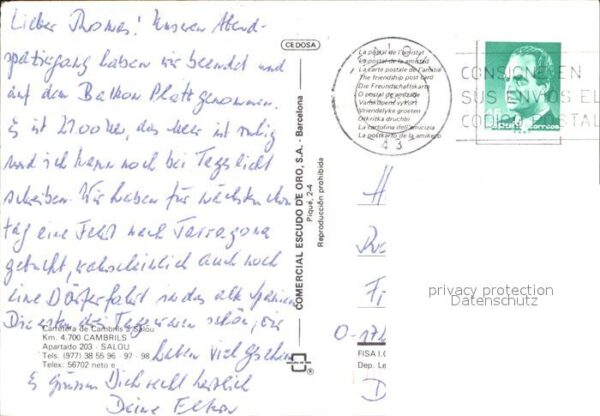 Lieber Thomas! Unseren Abend-
spaziergang haben wir beendet und
auf dem Balkon Platz genommen.
Es ist 21.00 Uhr, das Meer ist ruhig
und ich kann noch bei Tageslicht
schreiben. Wir haben für nächsten
tag eine Fahrt nach Tarragona
gebucht, wahrscheinlich auch noch
eine Dörferfahrt in das alte Spanien
Die ersten Tage waren schön, wir
haben viel gesehen
Es grüssen Dich recht herzlich
Deine Eltern
Carretera de Cambrils a Salou
Km. 4.700 CAMBRILS
Apartado 203 - SALOU
Tels. (977) 38 55 96 - 97 - 98
Telex: 56702 neto e
CEDOSA
COMERCIAL ESCUDO DE ORO, S.A. - Barcelona
Piqué, 2-4
Reproducción prohibida
®
La postal de l'amistat
La postal de la amistad
La carte postale de l'amitié
The friendship post card
Die Freundschaftskarte
O postal da amizade
Vänskapens vykort
Vriendelijke groeten
Otkritka druchbi
La cartolina dell'amicizia
43
CONSIGNE EN
SUS ENVIOS EL
CODIGO POSTAL
45
CORREOS
privacy protection
Datenschutz
O-172
FISA I.G.
Dep. Le